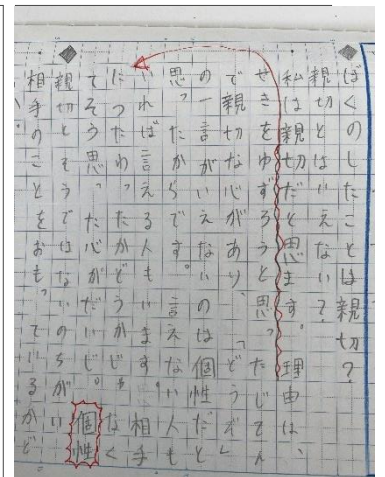 ぼくのしたことは親切?
親切とはいえない?
私は親切だと思います。理由は、
せきをゆずろうと思ったじてん
で親切な心があり、「どうぞ」
の一言がいえないのは個性だと
思ったからです。言えない人も
いれば言える人もいます。相手
につたわったかどうかじゃなく
てそう思った心がだいじ。
個性
親切とそうではないのちがい
相手のことをおもっているかど